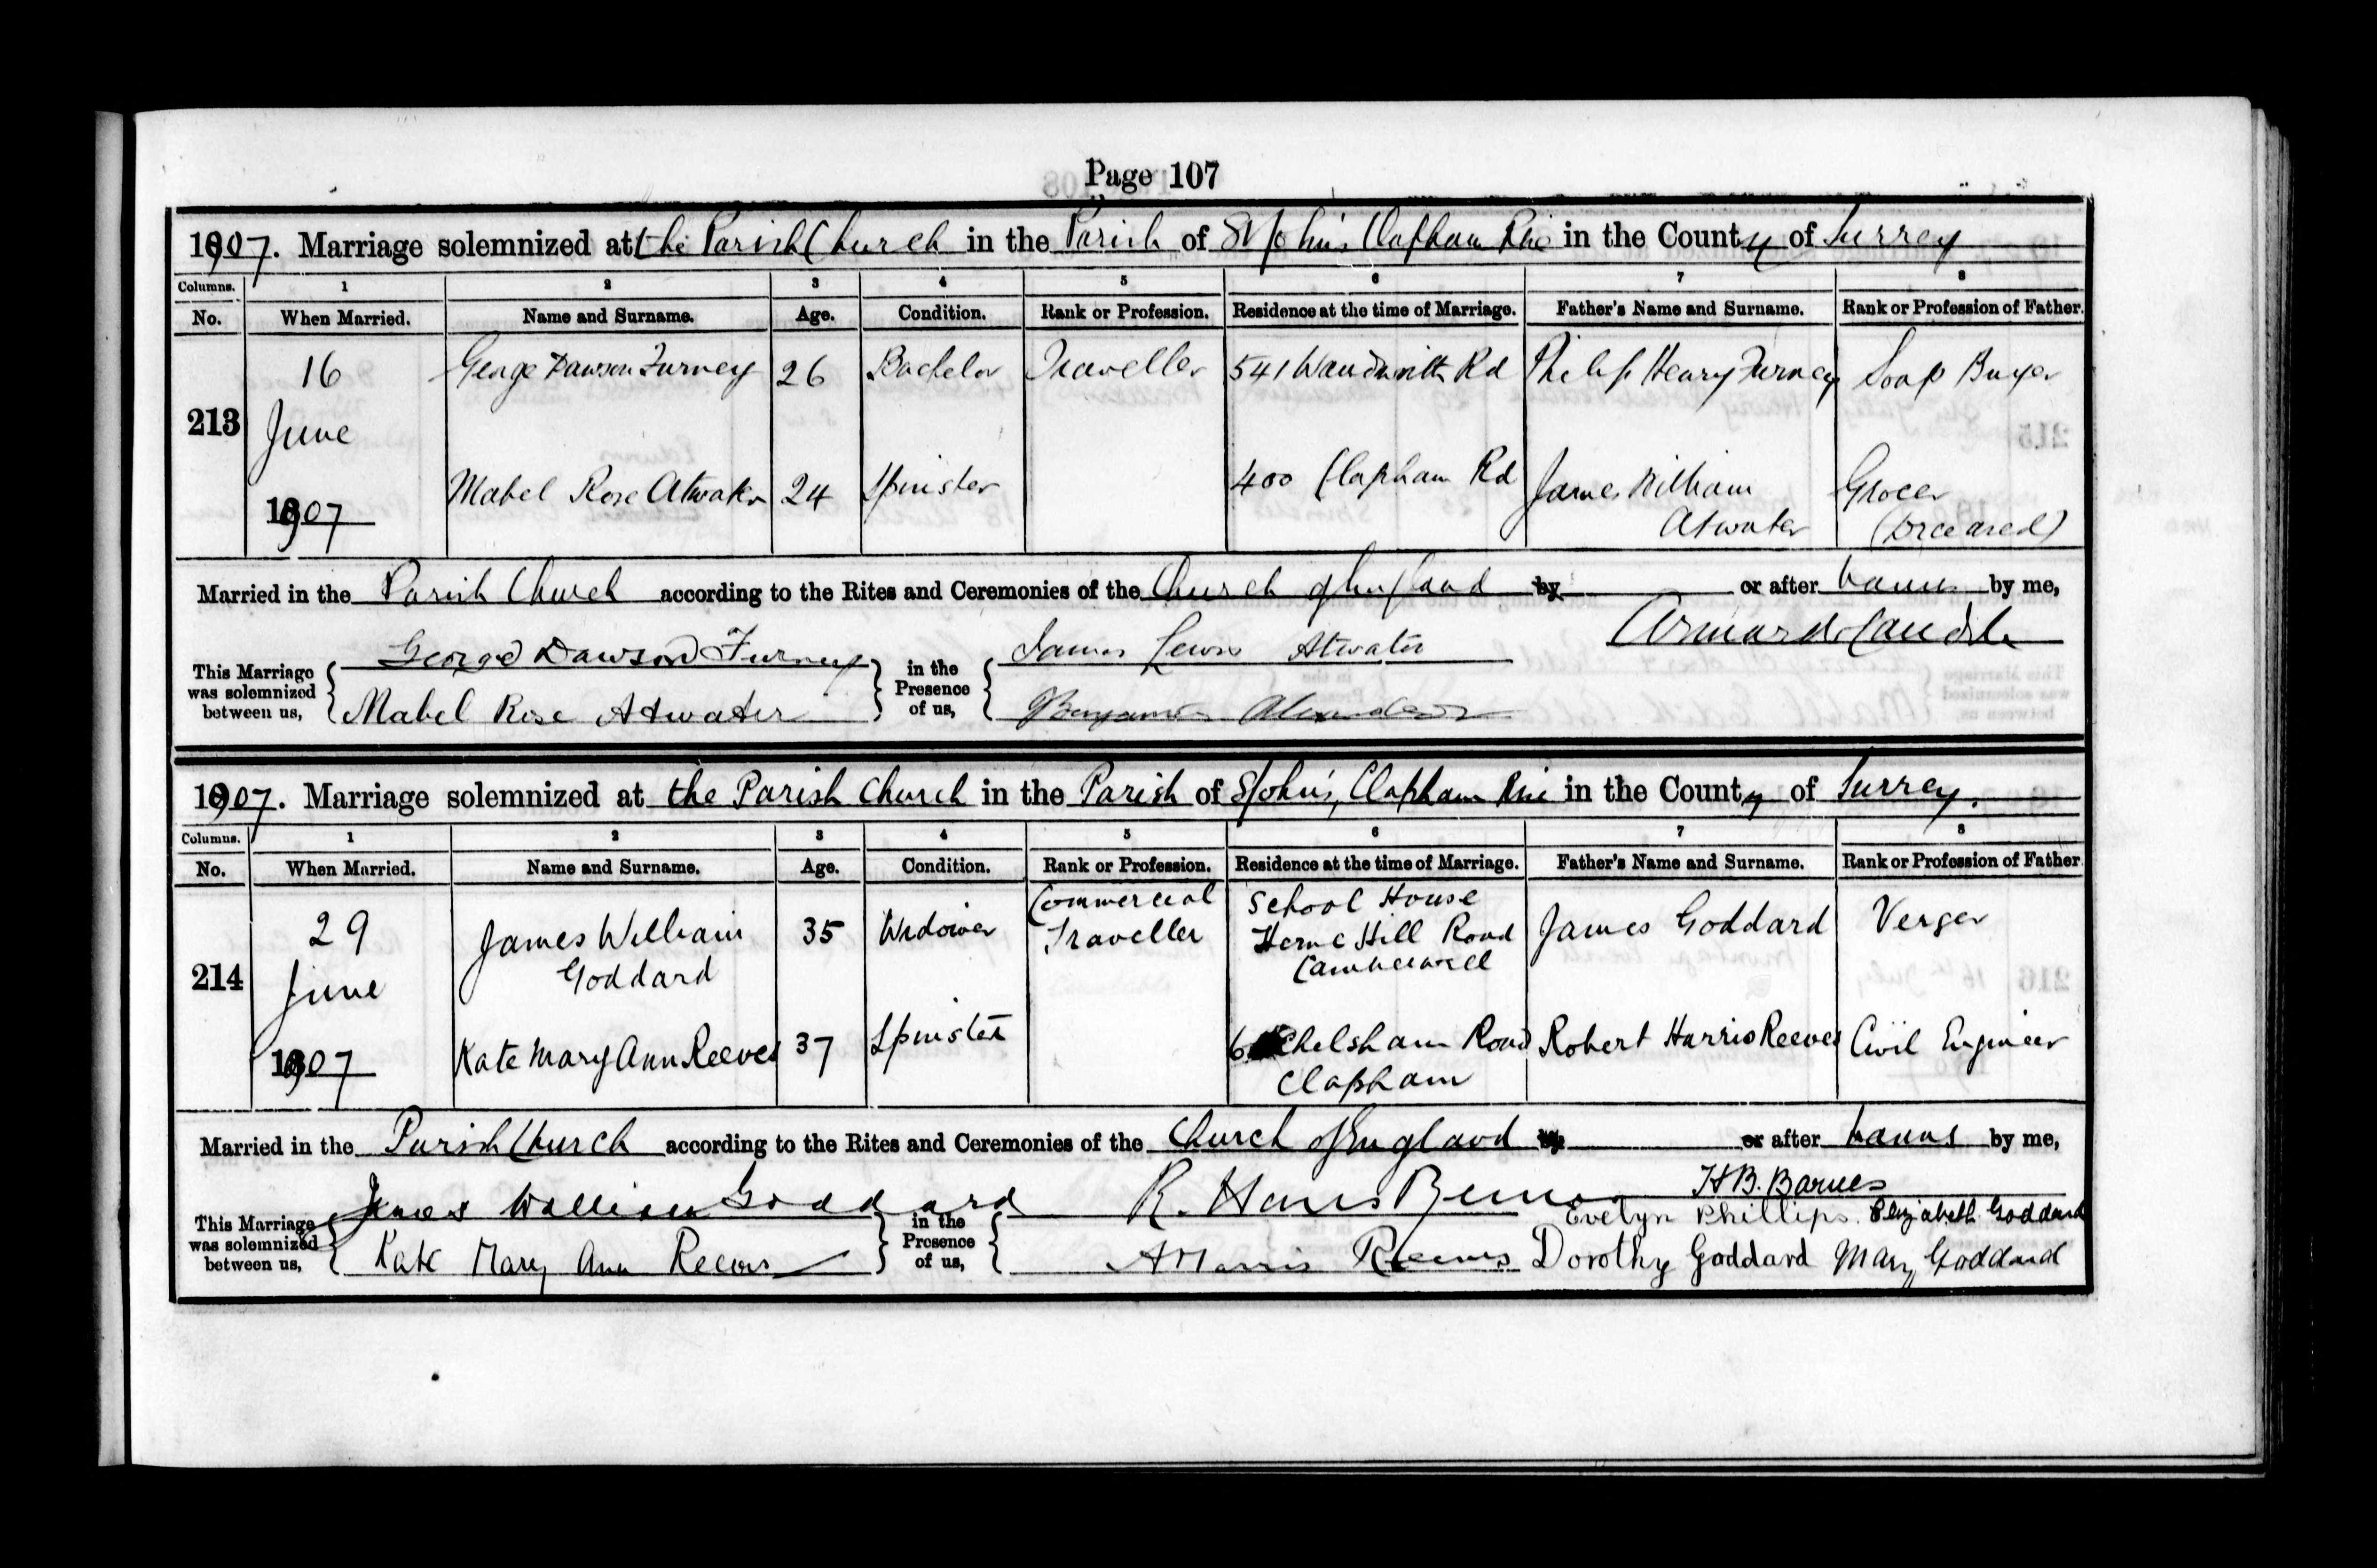 Page 107
1907. Marriage solemnized at the Parish Church in the Parish of St John's Clapham Rise in the County of Surrey
Columns. 1 2 3 4 5 6 7 8
No. When Married. Name and Surname. Age. Condition. Rank or Profession. Residence at the time of Marriage. Father's Name and Surname. Rank or Profession of Father.
213 16 George Dawson Furney 26 Bachelor Traveller 541 Wandsworth Rd Philip Henry Furney Soap Buyer
June
1907 Mabel Rose Atwater 24 Spinster 400 Clapham Rd James William Grocer
Atwater (Deceased)
Married in the Parish Church according to the Rites and Ceremonies of the Church of England by or after banns by me,
This Marriage was solemnized between us, George Dawson Furney in the Presence of us, James Lewis Atwater
Mabel Rose Atwater Benjamin
1907. Marriage solemnized at the Parish Church in the Parish of St John's, Clapham Rise in the County of Surrey.
Columns. 1 2 3 4 5 6 7 8
No. When Married. Name and Surname. Age. Condition. Rank or Profession. Residence at the time of Marriage. Father's Name and Surname. Rank or Profession of Father
214 29 James William 35 Widower Commercial School House James Goddard Verger
June Goddard Traveller Herne Hill Road
Camberwell
1907 Kate Mary Ann Reeves 37 Spinster 6 Chelsham Road Robert Harris Reeves Civil Engineer
Clapham
Married in the Parish Church according to the Rites and Ceremonies of the Church of England by or after banns by me,
H B. Barnes
This Marriage was solemnized between us, James William Goddard in the Presence of us, R. Harris Evelyn Phillips. Elizabeth Goddard
Kate Mary Ann Reeves A Harris Reeves Dorothy Goddard Mary Goddard